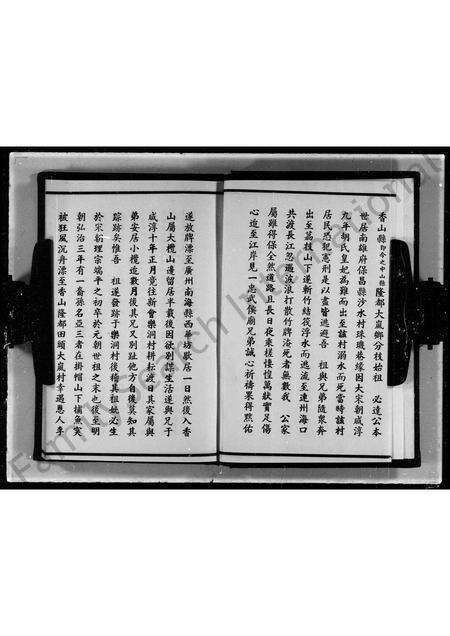 香山縣即今之中山縣隆都大嵐鄉分技始祖 必達公本
世居南雄府保昌縣沙水村珠璣巷緣因大宋朝咸淳
九年朝氏皇妃為難而出至該村溺水而死當時該村
居民恐犯憲刑是以盡皆逃避吾 祖與兄弟隨衆奔
出至荔枝山下遂斬竹結筏浮水而逃流至連州海口
共渡長江忽遇波浪打散竹牌淹死者無數我 公家
屬雖得保全然道路且長日夜來槎悽惶萬狀實足傷
心迨至江岸見一忠武侯廟兄弟誠心祈禱果得默佑
遂放牌漂至廣州南海縣西華坊歇居一日然後入香
山屬大欖山邊留居半載後因欲別謀生活遂與兄于
咸淳十年正月竟往新會樂洞村耕耘渡日其家屬與
弟安居小欖迨數月後其兄又別趾他方自後莫知其
踪跡矣惟吾 祖遂發跡于樂洞村後稽其祖妣必生
於宋朝理宗端平之初卒於元朝世祖之末也後至明
朝弘治三年有一裔孫名亞三者在掛帽山下捕魚突
被狂風沉舟漂至香山隆都田頭大嵐村幸遇恩人李
Family Search International